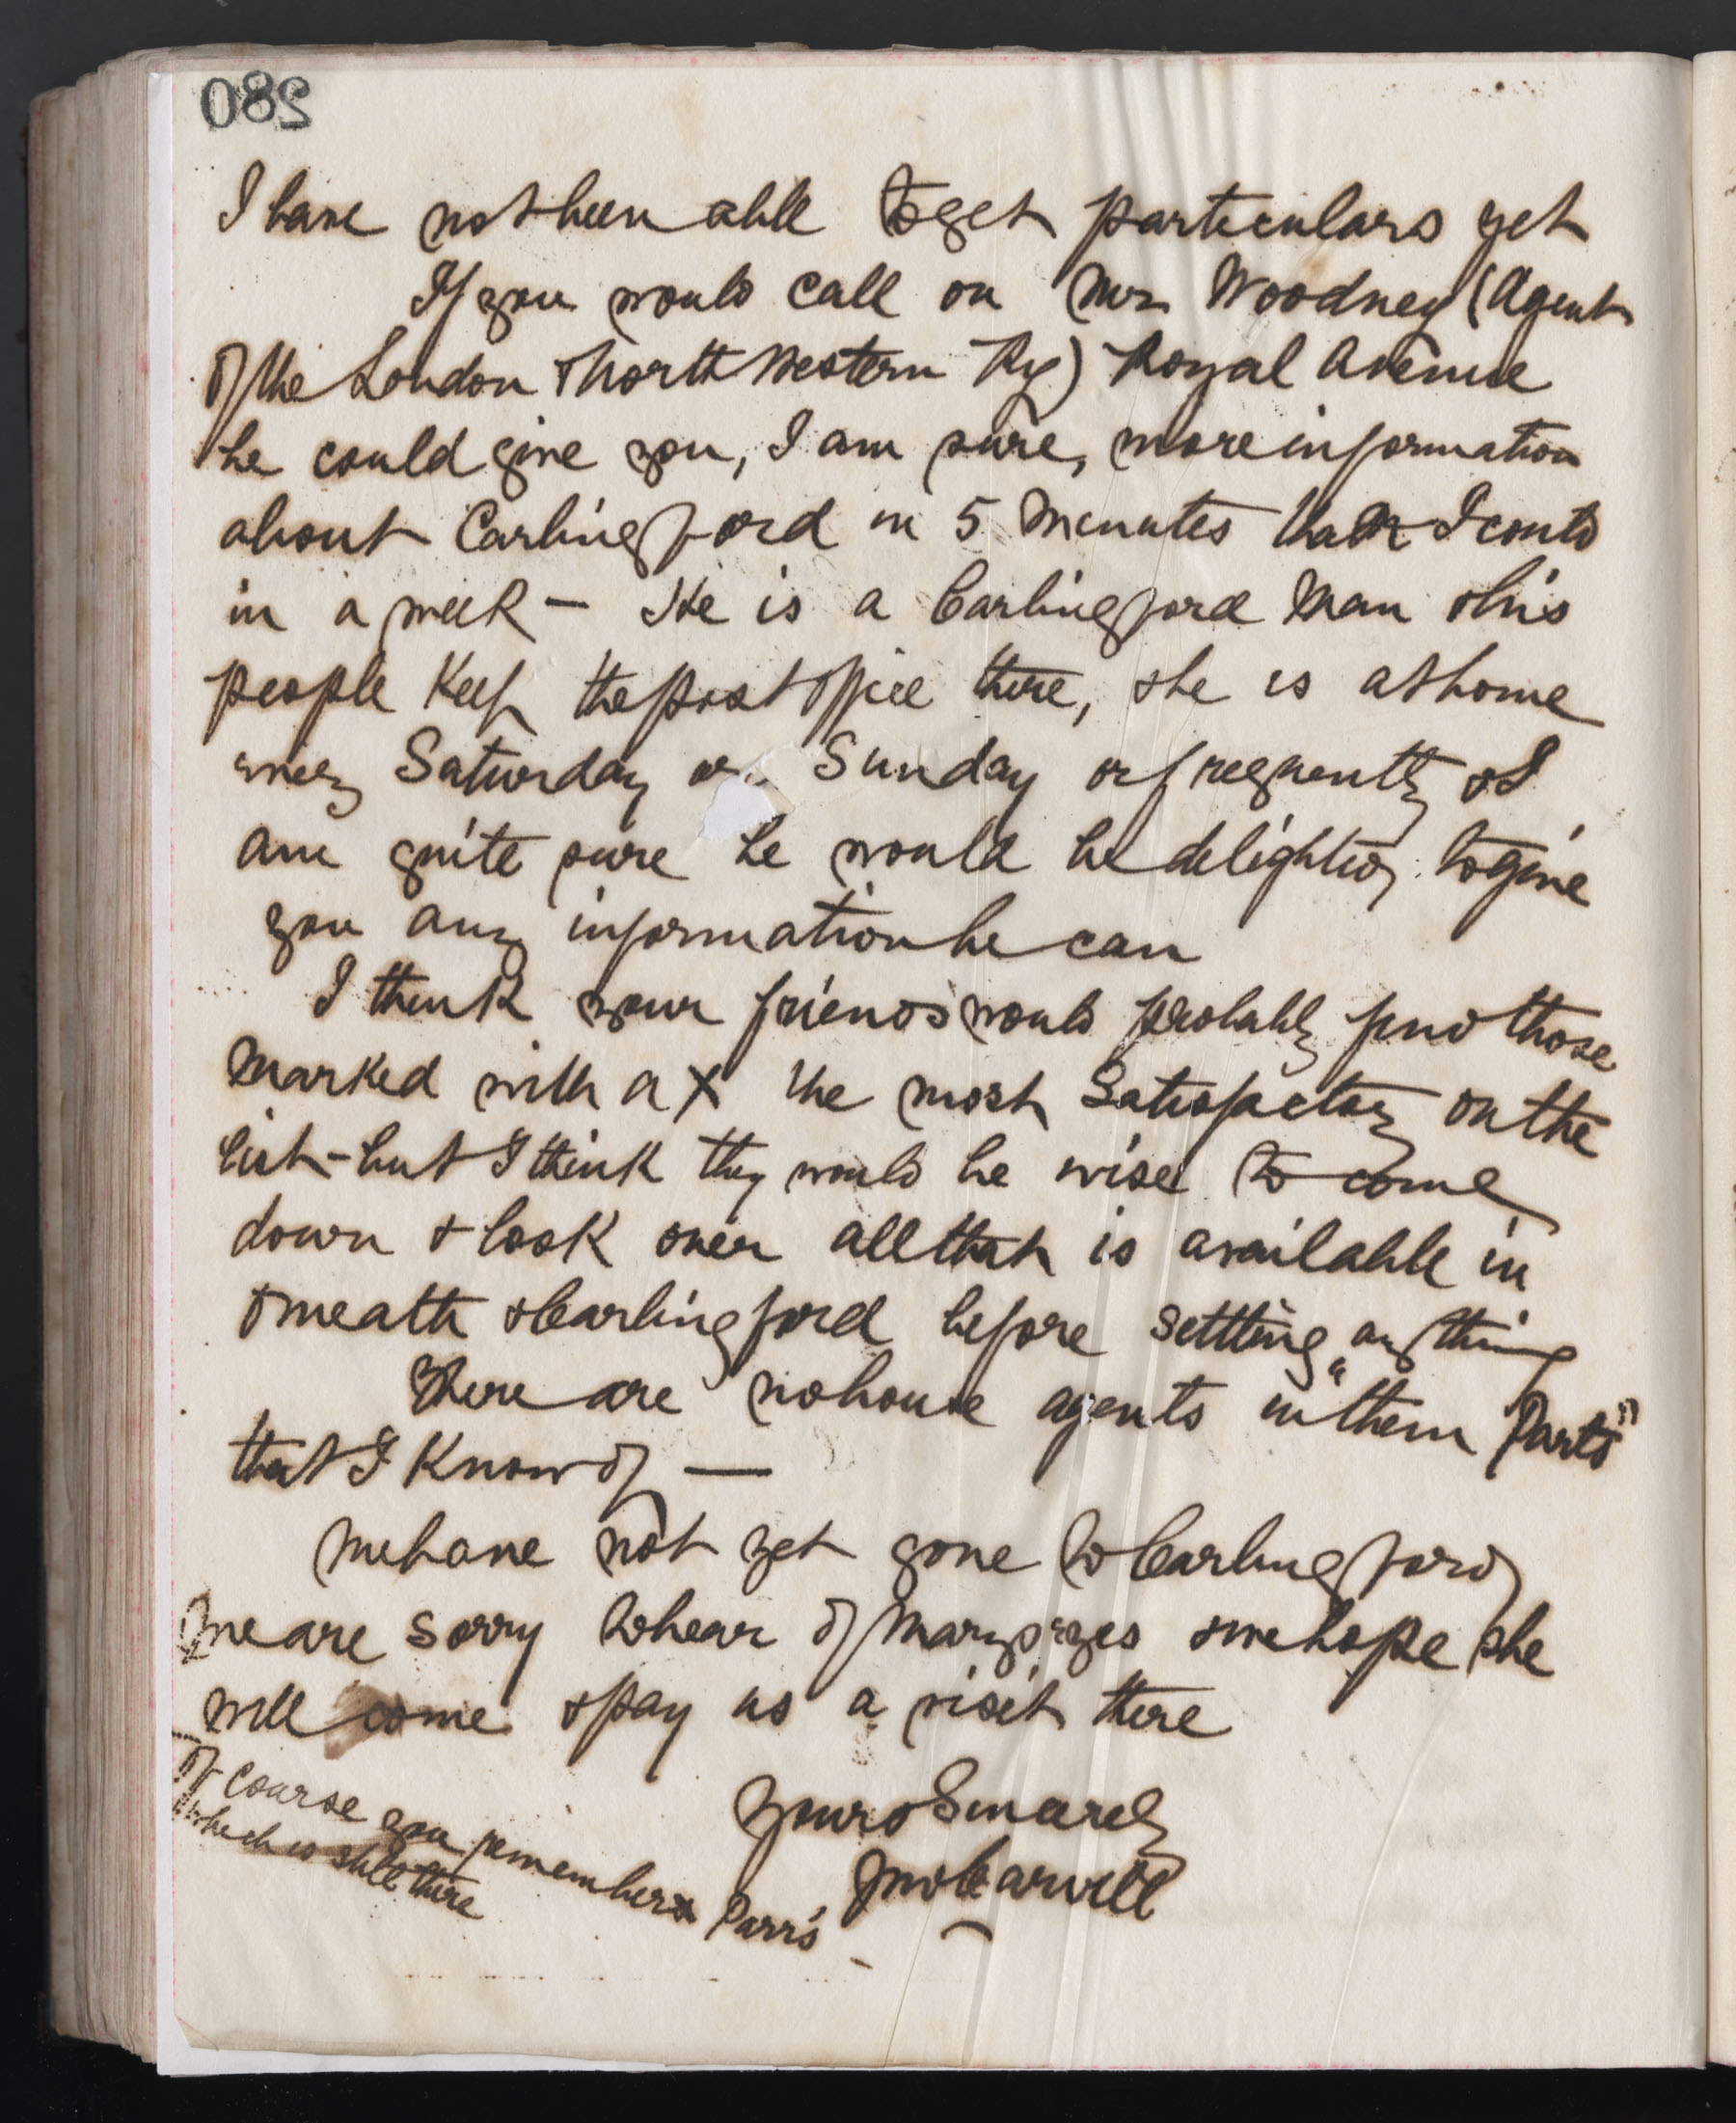 280
I have not been able to get particulars yet
If you would call on Mr Woodney (Agent
of the London & North Western Ry) Royal Avenue
he could give you, I am sure, more information
about Carlingford in 5 minutes than I could
in a week — He is a Carlingford man & his
people keep the post office there, & he is at home
every Saturday or Sunday or frequently & I
am quite sure he would be delighted to give
you any information he can
I think your friends would probably find those
marked with a X the most satisfactory on the
list - but I think they would be wise to come
down & look over all that is available in
Omeath & Carlingford before settling anything
There are no house agents in "them Parts"
that I know of —
We have not yet gone to Carlingford
We are sorry to hear of Mary's eyes & we hope she
will come & pay us a visit there
Yours Sincerely
Jno Carvill
Of course you remember Parr's
which is still there